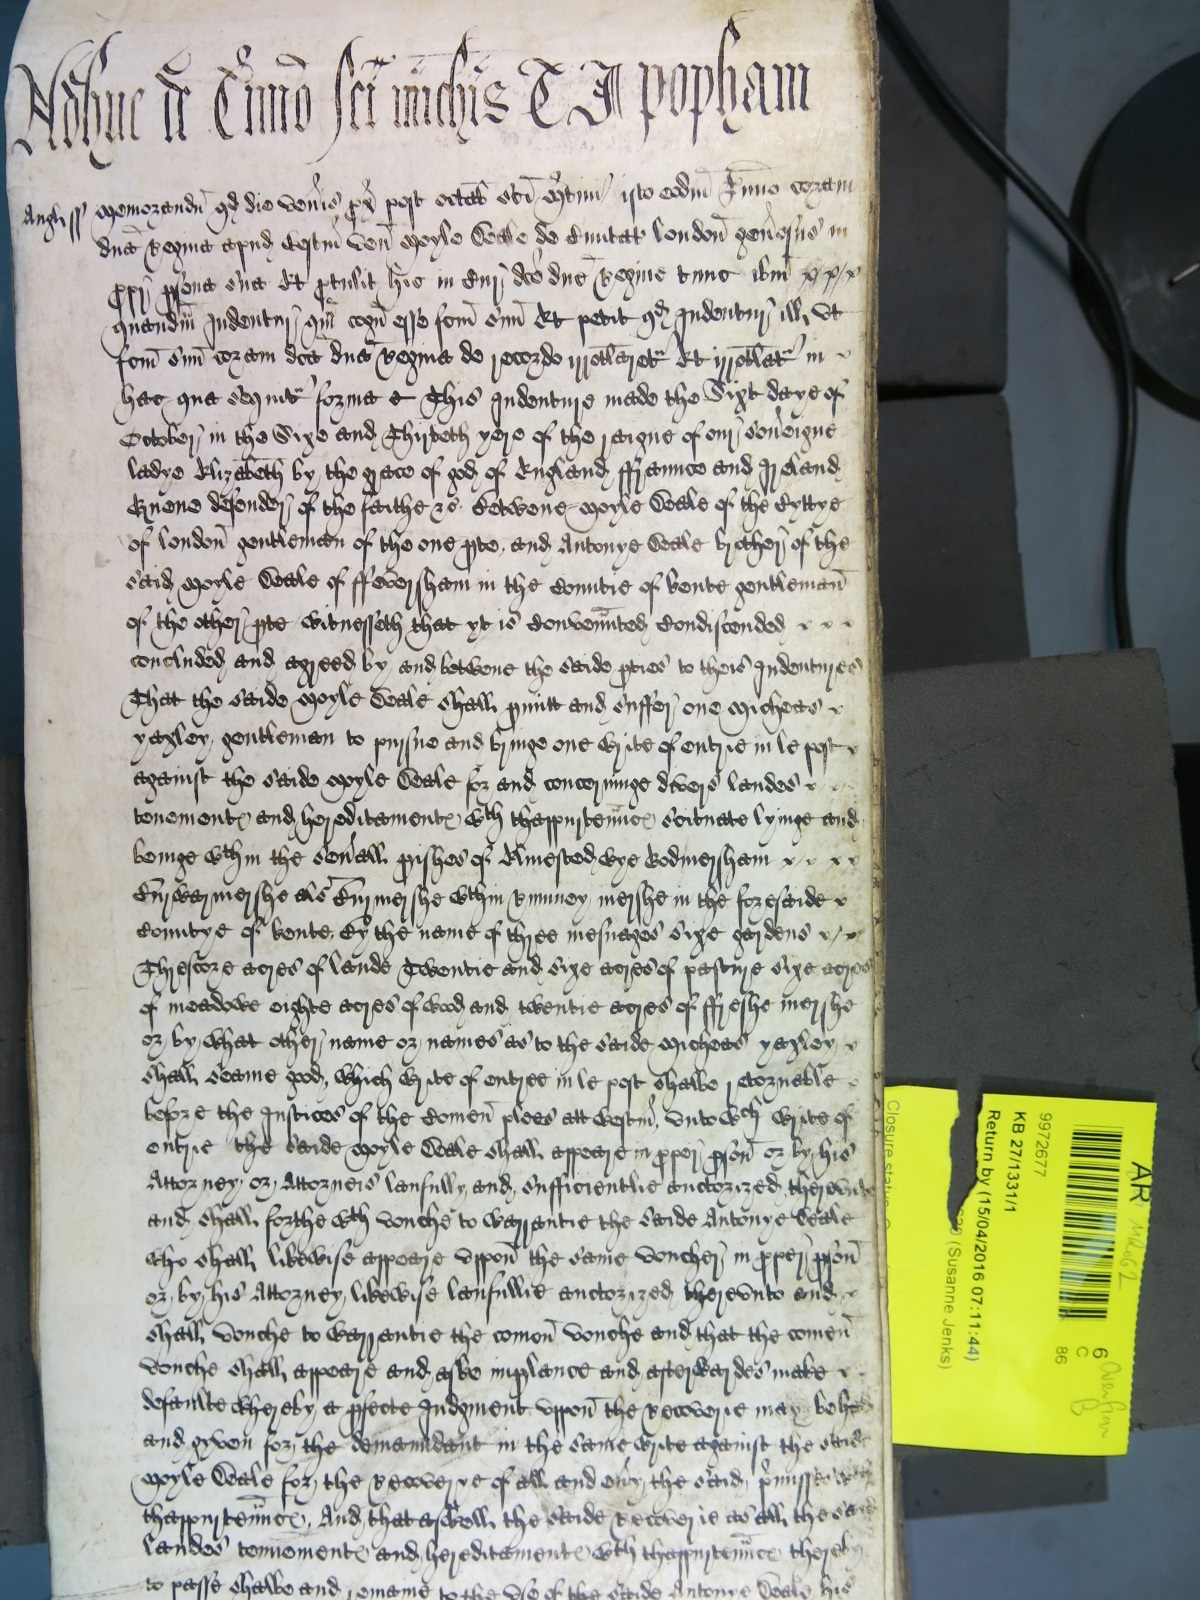 Adhuc de Timo sci michis T J popham
Angl ss memorandu qd die venis px post octab sci mtini isto eodm Timo coram
dna Regina apud westm ven moyle Seale de Civitat london genosus in
ppr psona sua Et ptulit hic in Cur dce dne Regine tunc ibm
quandm Indentur qm cogn esse fcm suu Et petit qd Indentur ill ut
fcm suu coram dca dna Regina de recordo irrotlaret Et irrotlat in
hec que sequit forma This Indenture made the Sixt daye of
October in the Sixe and Thirteth yere of the raigne of our soveigne
ladye Elizabeth by the grace of god of England ffraunce and Ireland
Quene defender of the faithe zc Betwene moyle Seale of the Cyttye
of london gentleman of the one pte and Antonye Seale brother of the
said moyle Seale of ffeversham in the Countie of kente gentleman
of the other pte witnesseth that yt is Convennted Condiscended
concluded and agreed by and betwene the saide pties to theis Indentures
That the saide moyle Seale shall pmitt and suffer one micheas
yaxley gentleman to pursue and bringe one write of entrie in le post
against the saide moyle Seale for and concerninge divers landes
tenemente and hereditamente wth thappurtennce scituate lyinge and
beinge wthin the sevall pishes of Elmested wye Godmersham
wthin Rumney mershe in the foresaide
Countye of kente By the name of three mesuages sixe gardens
Threscore acres of lande Twentie and sixe acres of pasture sixe acres
of meadowe eighte acres of wood and twentie acres of ffreshe mershe
or by what other name or names as to the saide micheas yaxley
shall seame good which write of entree in le post shalbe retornable
before the Justices of the Comen plees att westm unto wch write of
entrie the saide moyle Seale shall appeare in pper pson or by his
Attorney or Attorneis laufully and sufficientlie auctorized therunto
and shall forthe wth vouche to warrantie the saide Antonye Seale
who shall likewise appeare uppon the same voucher in pper pson
or by his Attorney likewise laufullie auctorized therevnto and
shall vouche to warrantie the comon vouche and that the comen
vouche shall appeare and aske implance and afterwardes make
defaulte whereby a pfecte Judgment uppon the Recoverie may be had
and gyven for the demaundant in the same write against the saide
moyle Seale for the Recoverye of all and evy the said pmisses with
thappurtennce And that aswell the saide Recoverie as all the said
landes tennemente and hereditamente wth thappurtennce thereby
to passe shalbe and remaine to the use of the saide Antonye Seale his
AR
9972677
KB 27/1331/1
Return by (15/04/2016 07:11:44)
(Susanne Jenks)
Closure status
6
C
86